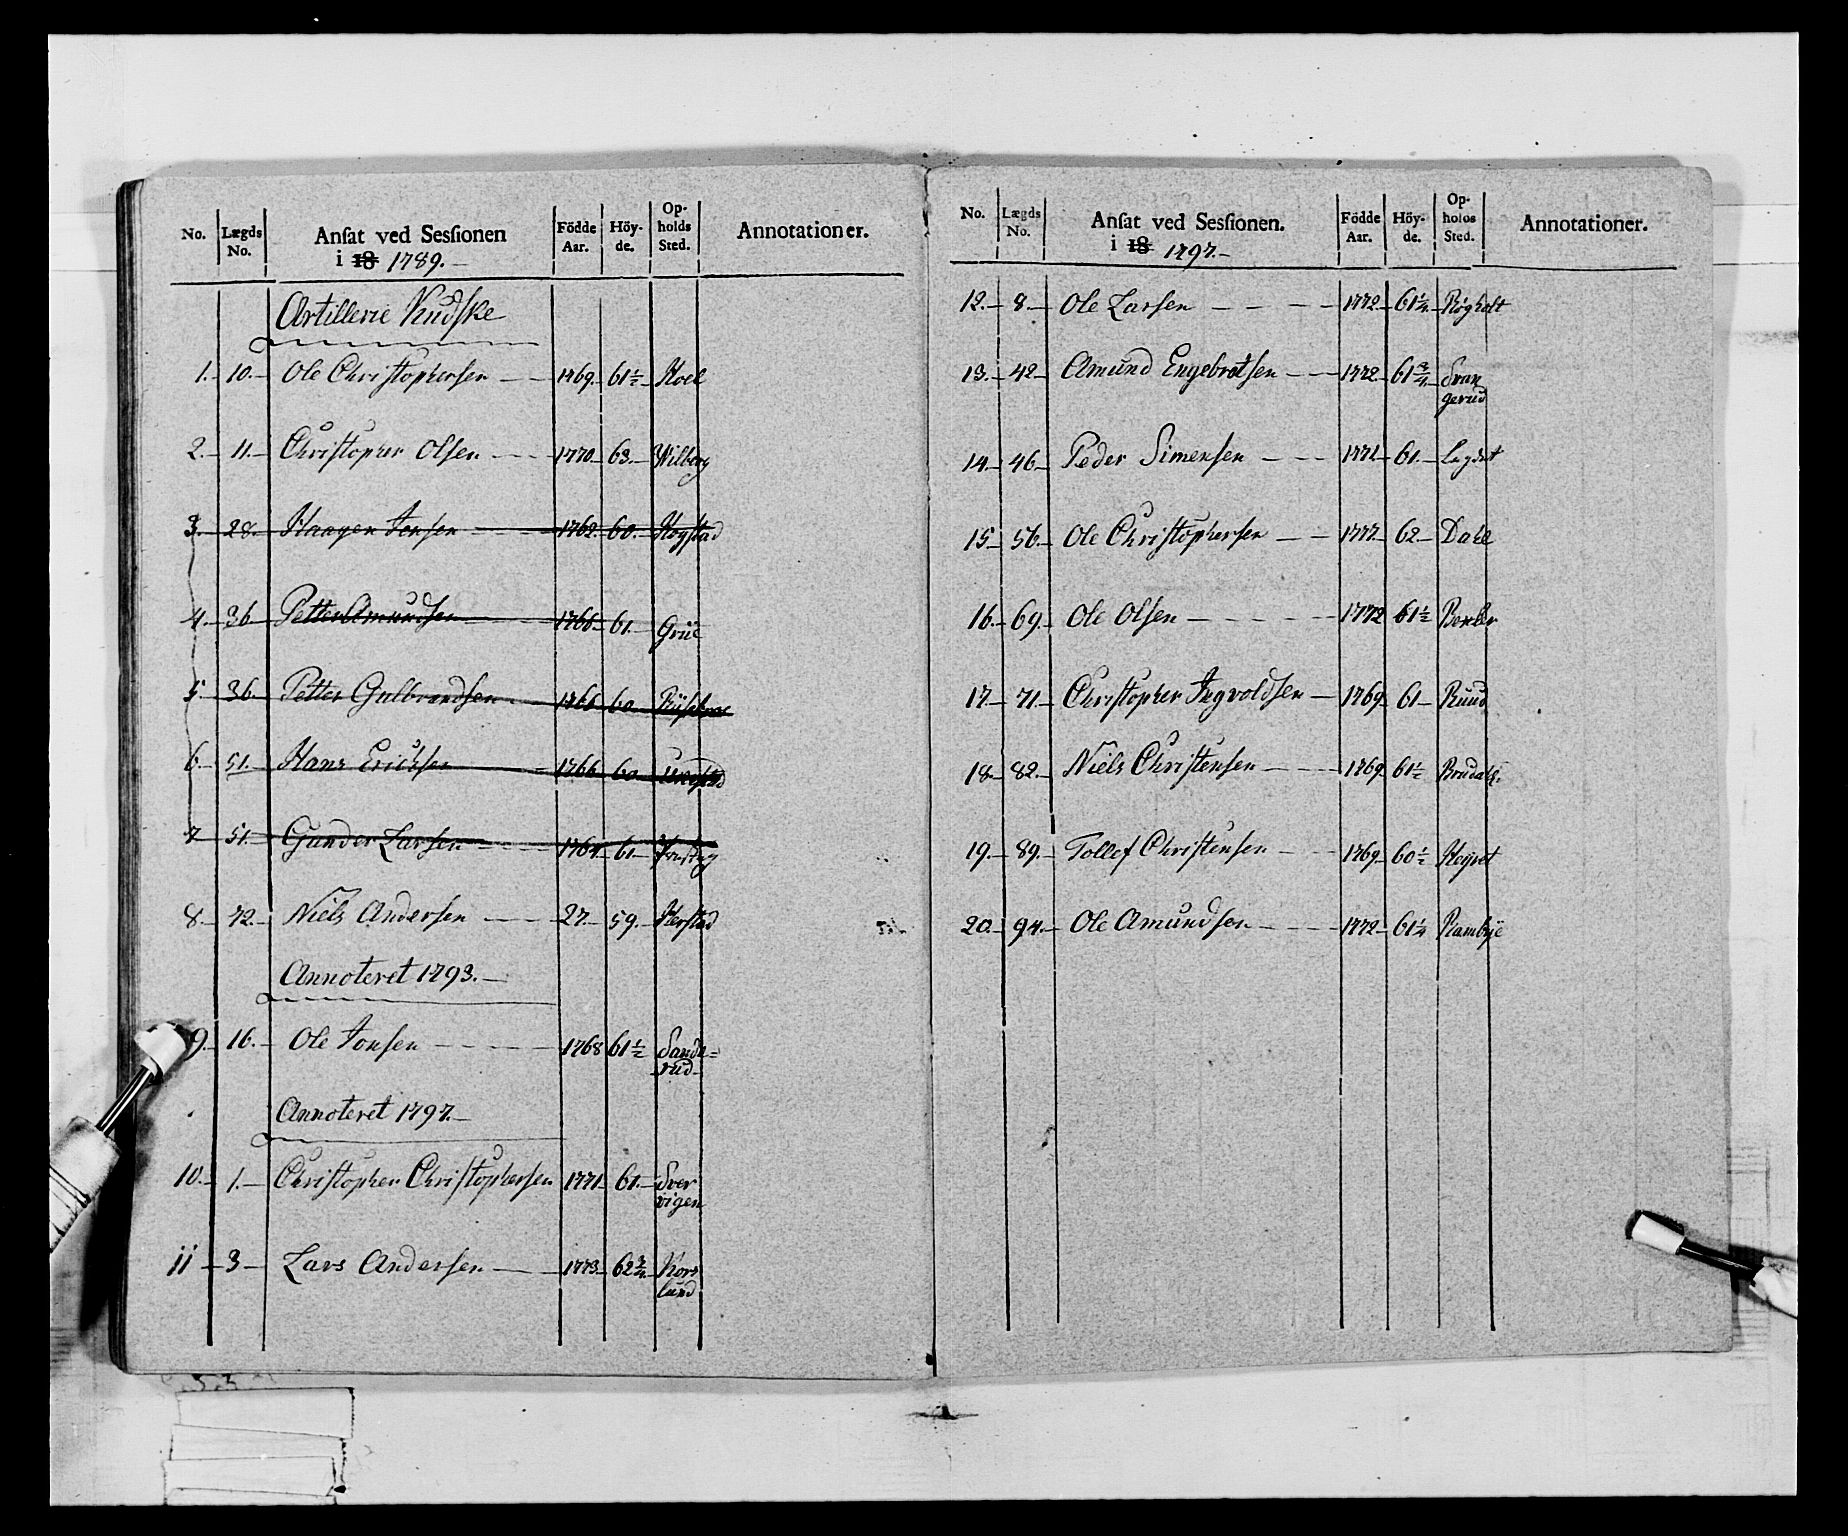 No. Lægds No. Ansat ved Sessionen i 18 1789.- Födde Aar. Höy-de. Op-holds Sted. Annotationer.
Artillerie Kudske
1. 10. Ole Christophersen 1769. 61½ Hoel
2. 11. Christopher Olsen 1770. 63. Wilberg
3. 28. Haagen Jensen 1762. 60. Kogstad
4. 36 Petter Amundsen 1766 61. Grüe
5. 36. Petter Gulbrandsen 1766 60.
6. 51. Hans Erichsen 1766 60.
7 51. Gunder Larsen 1764 61.
8. 72. Niels Andersen 27. 59. Herstad
Annoteret 1793.
9. 16. Ole Jonsen 1768 61½ Sande=
rud
Annoteret 1797.
10. 1. Christopher Christophersen 1771 61. Sver
vigen
11 3 Lars Andersen 1773. 62¾ Kors
lund
No. Lægds No. Ansat ved Sessionen. i 18 1797.- Födde Aar. Höy-de. Op-holds Sted. Annotationer.
12. 8. Ole Larsen 1772. 61¼. Røgholt
13. 42 Amund Engebretsen 1772 61¾ Svan
gerud
14. 46 Peder Simensen 1771 61.
15. 56. Ole Christophersen 1777. 62. Dahl
16. 69. Ole Olsen 1772 61½
17. 71. Christopher Ingvoldsen 1769 61 Ruud
18. 82. Niels Christensen 1769 61½
19. 89. Tollef Christensen 1769 60½
20. 94. Ole Amundsen 1772 61¼ Rambÿe